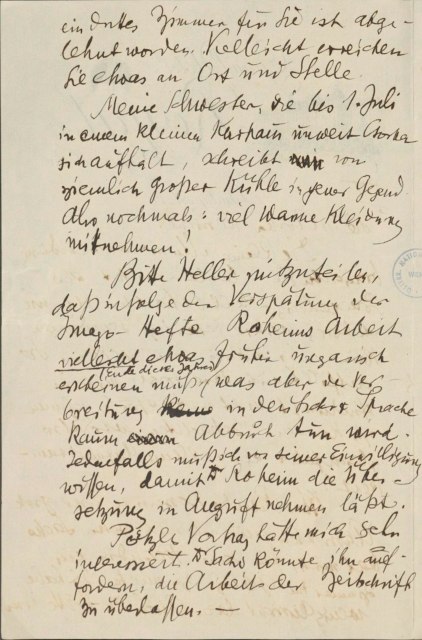 ein drittes Zimmer für Sie ist abge-
lehnt worden. Vielleicht erreichen
Sie etwas an Ort und Stelle.
Meine Schwester, die bis 1. Juli
in einem kleinen Kurhaus unweit Csorba
sich aufhält, schreibt von
ziemlich großer Kühle in jener Gegend.
Also nochmals: viel warme Kleidung
mitnehmen!
Bitte Heller mitzuteilen,
daß infolge der Verspätung der
Imago-Hefte Róheims Arbeit
vielleicht etwas früher ungarisch
(Ende dieses Jahres)
erscheinen muß, was aber der Ver-
breitung in deutscher Sprache
kaum Abbruch tun wird.
Jedenfalls muß ich von seiner Einwilligung
wissen, damit Dr Róheim die Über-
setzung in Angriff nehmen läßt.
Pötzls Vortrag hätte mich sehr
interessiert. Dr Sachs könnte ihn auf-
fordern, die Arbeit der Zeitschrift
zu überlassen. —